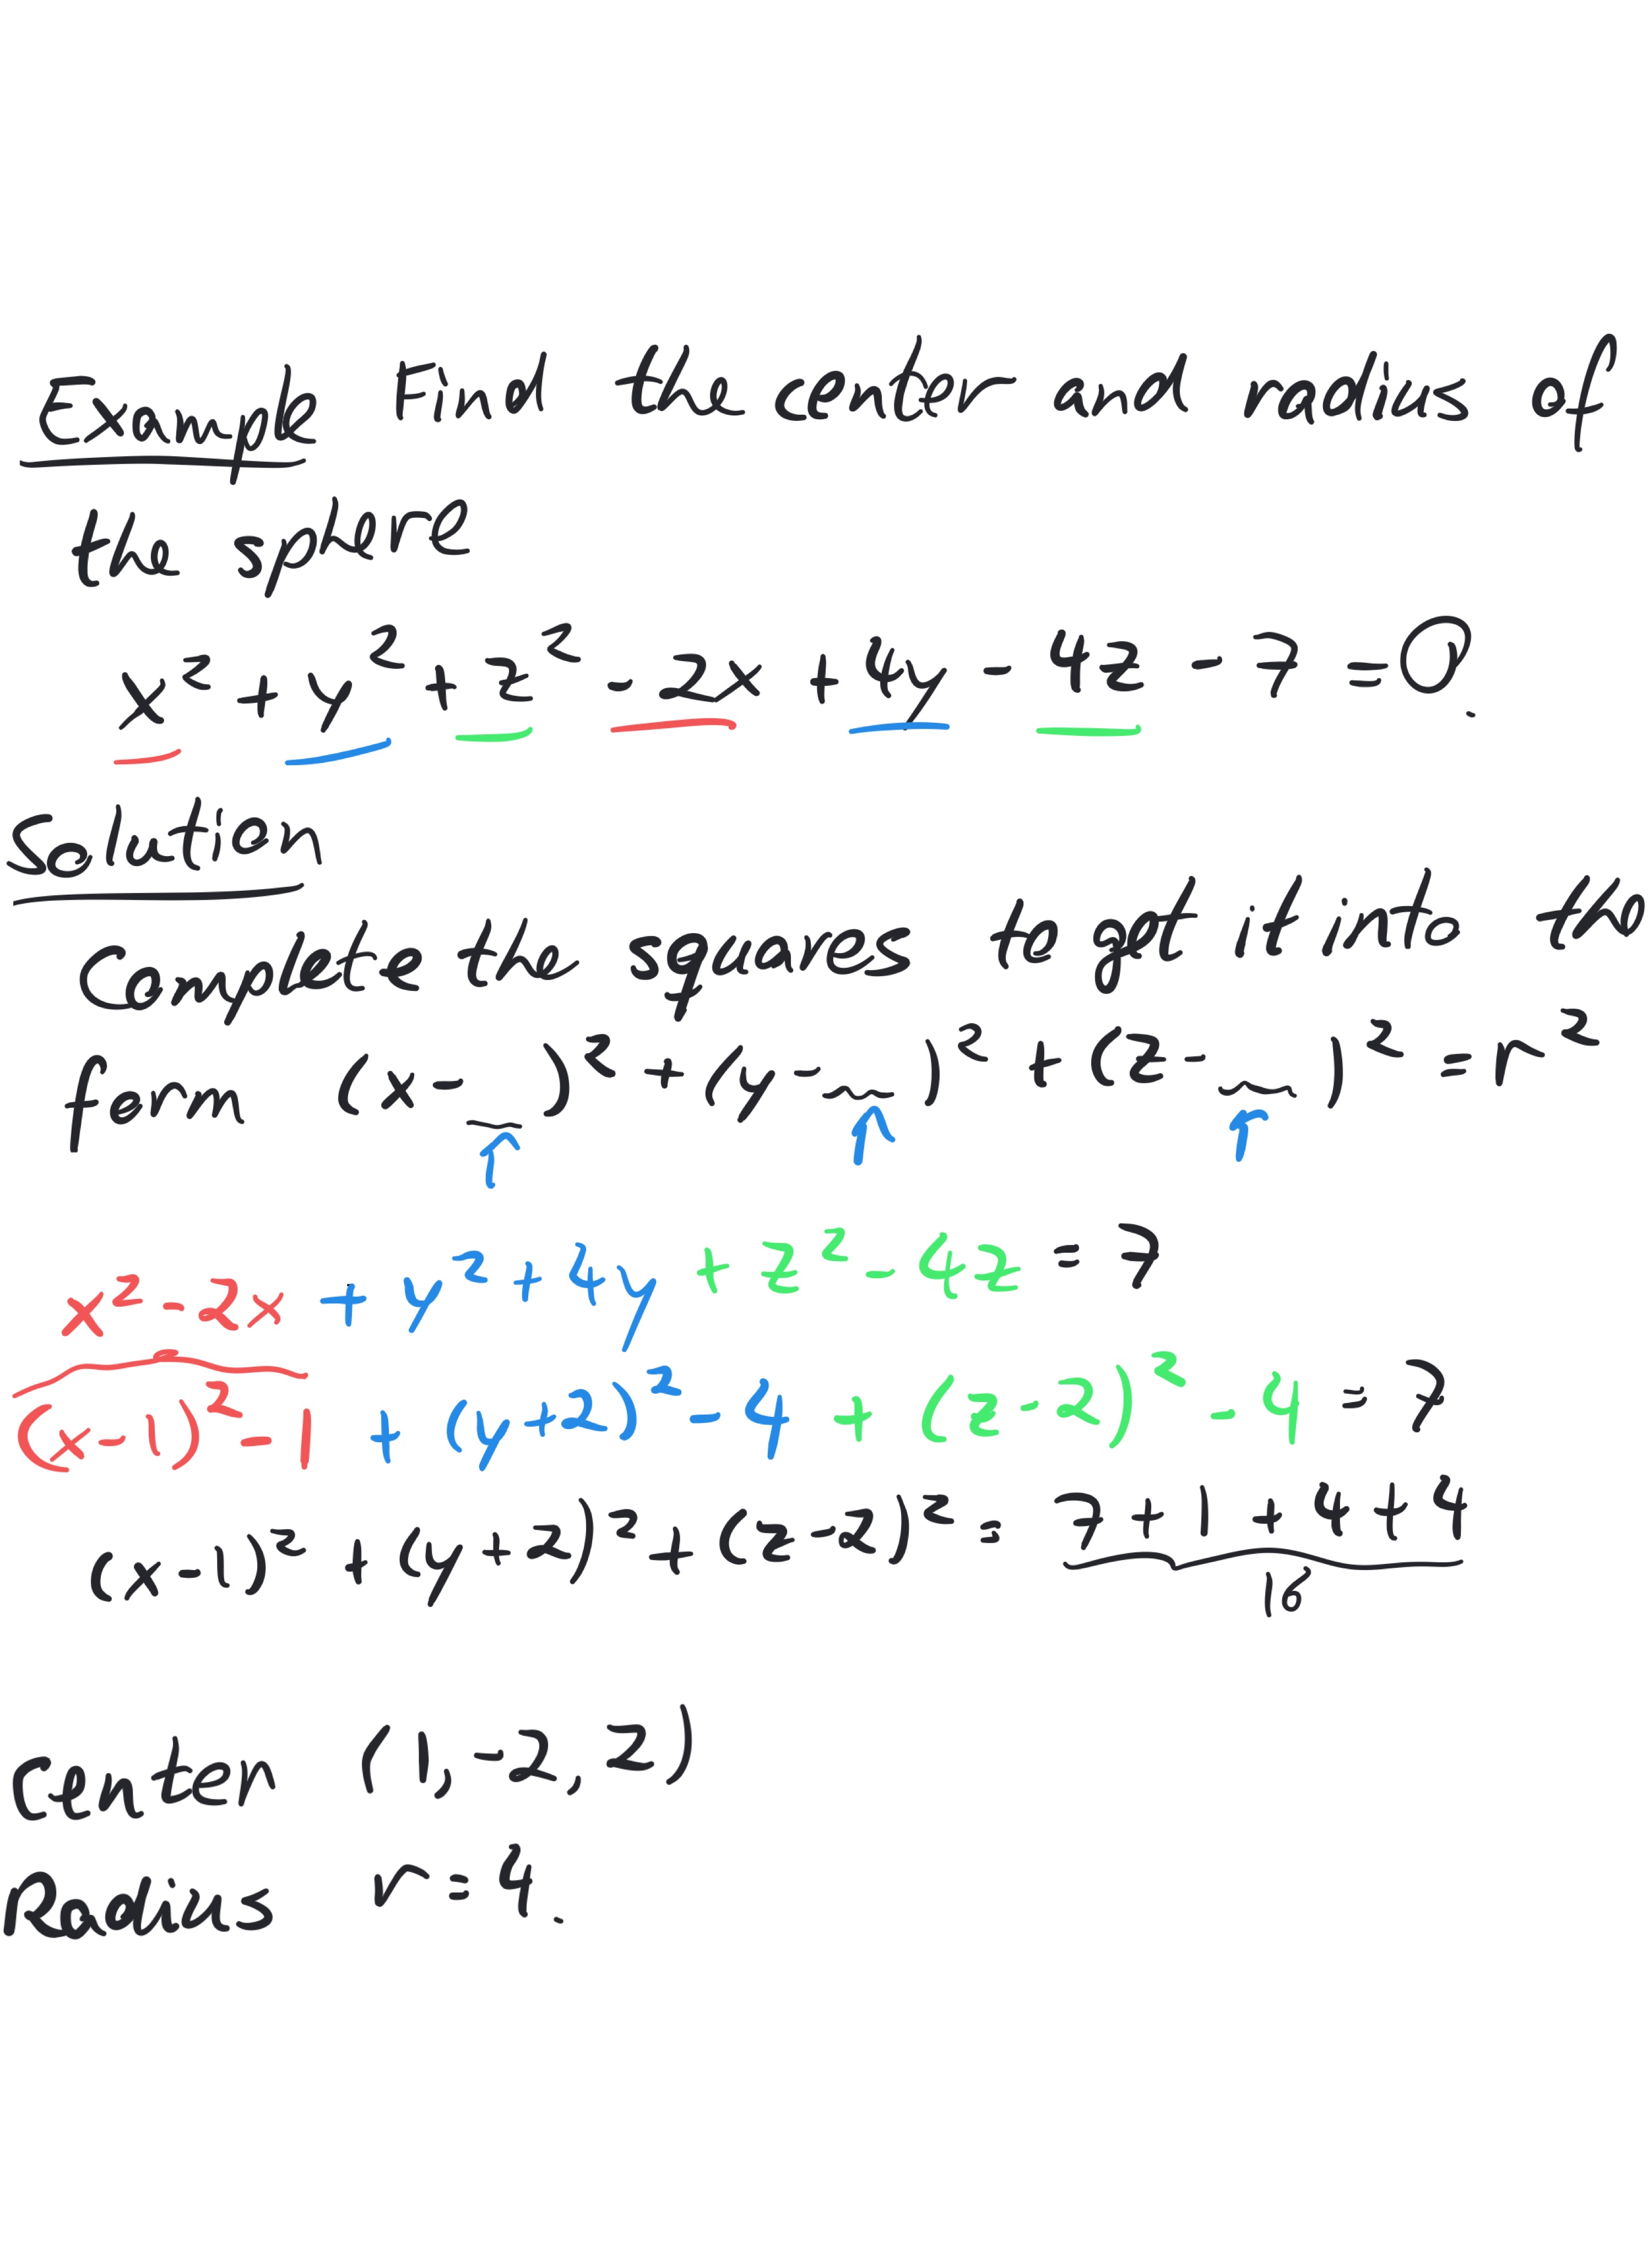 Example Find the center and radius of
the sphere
x² + y² + z² - 2x + 4y - 4z - 7 = 0.
Solution
Complete the squares to get it into the
form (x - _)² + (y - _)² + (z - _)² = r²
x² - 2x + y² + 4y + z² - 4z = 7
(x-1)² - 1 + (y+2)² - 4 + (z-2)² - 4 = 7
(x-1)² + (y+2)² + (z-2)² = 7 + 1 + 4 + 4
16
Center (1, -2, 2)
Radius r = 4.